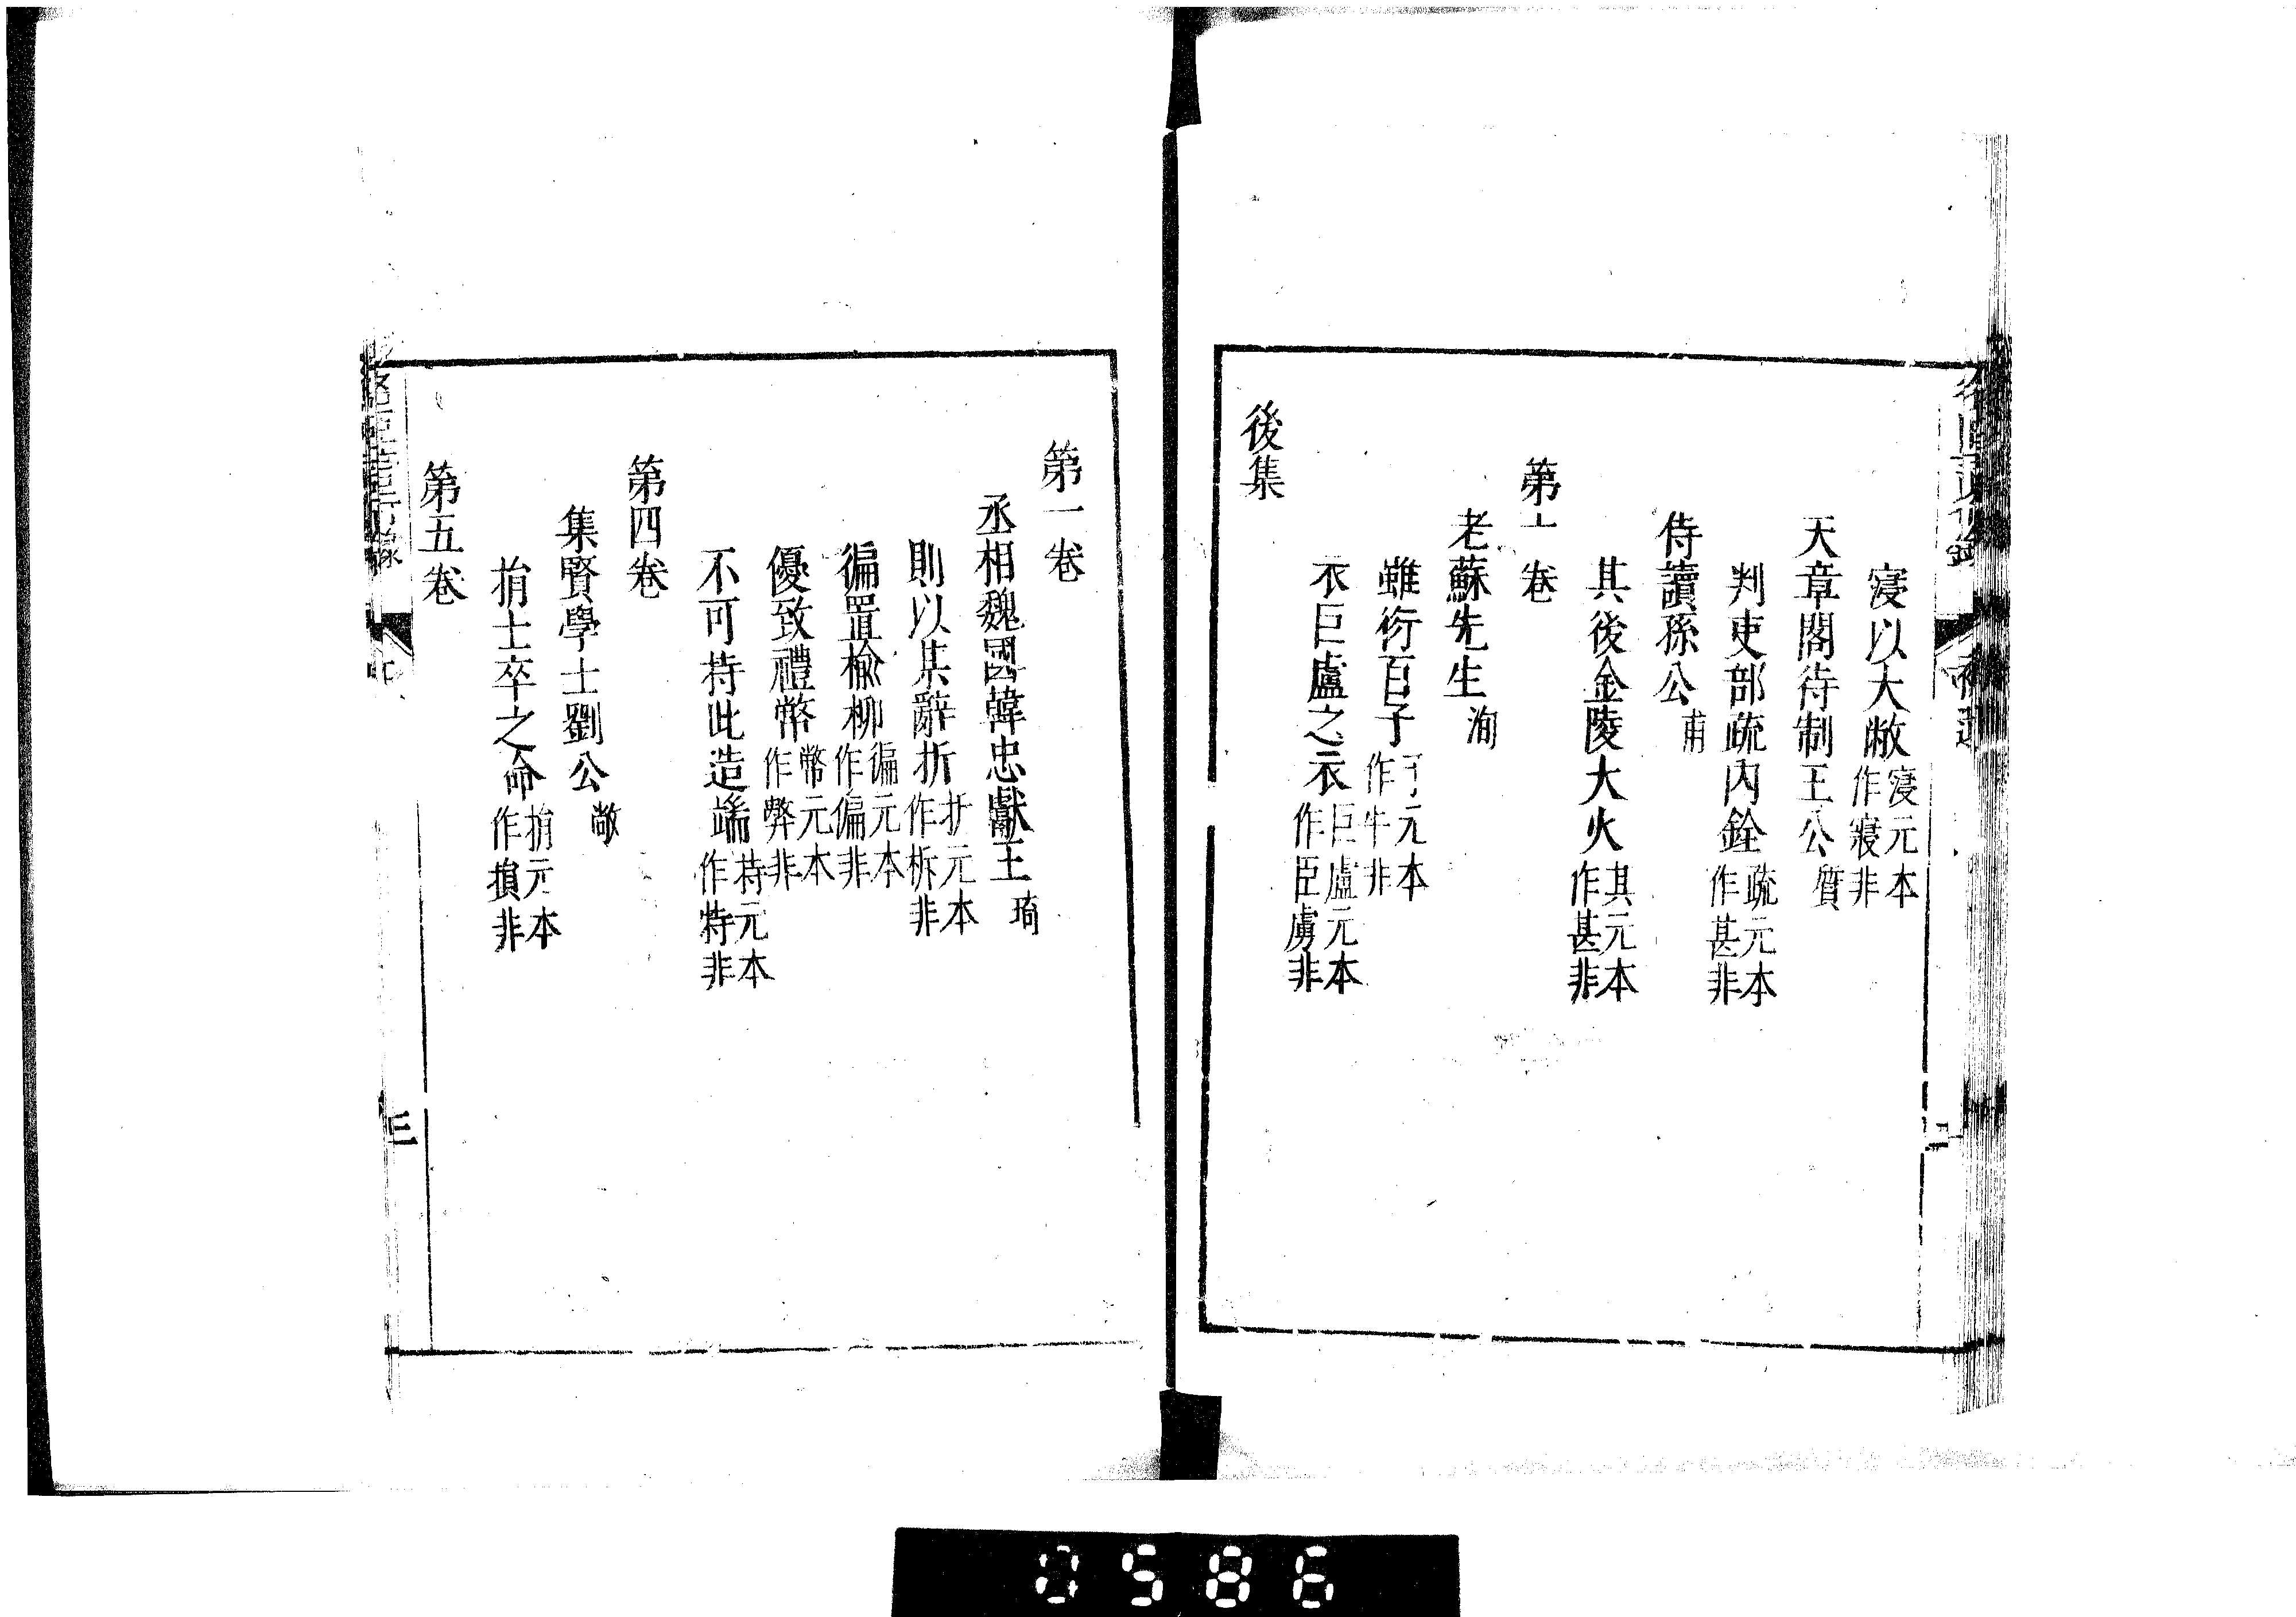 寖以大敝寖元本作寢非
天章閣待制王公質
判吏部疏內銓疏元本作甚非
侍讀孫公甫
其後金陵大火其元本作甚非
第十卷
老蘇先生洵
雖衍百子子元本作牛非
衣巨盧之衣巨盧元本作臣虜非
後集
第一卷
丞相魏國韓忠獻王琦
則以其辭折折元本作柝非
徧置榆柳徧元本作偏非
優致禮幣幣元本作弊非
不可持此造端持元本作特非
第四卷
集賢學士劉公敞
捐士卒之命捐元本作損非
第五卷
三
0586